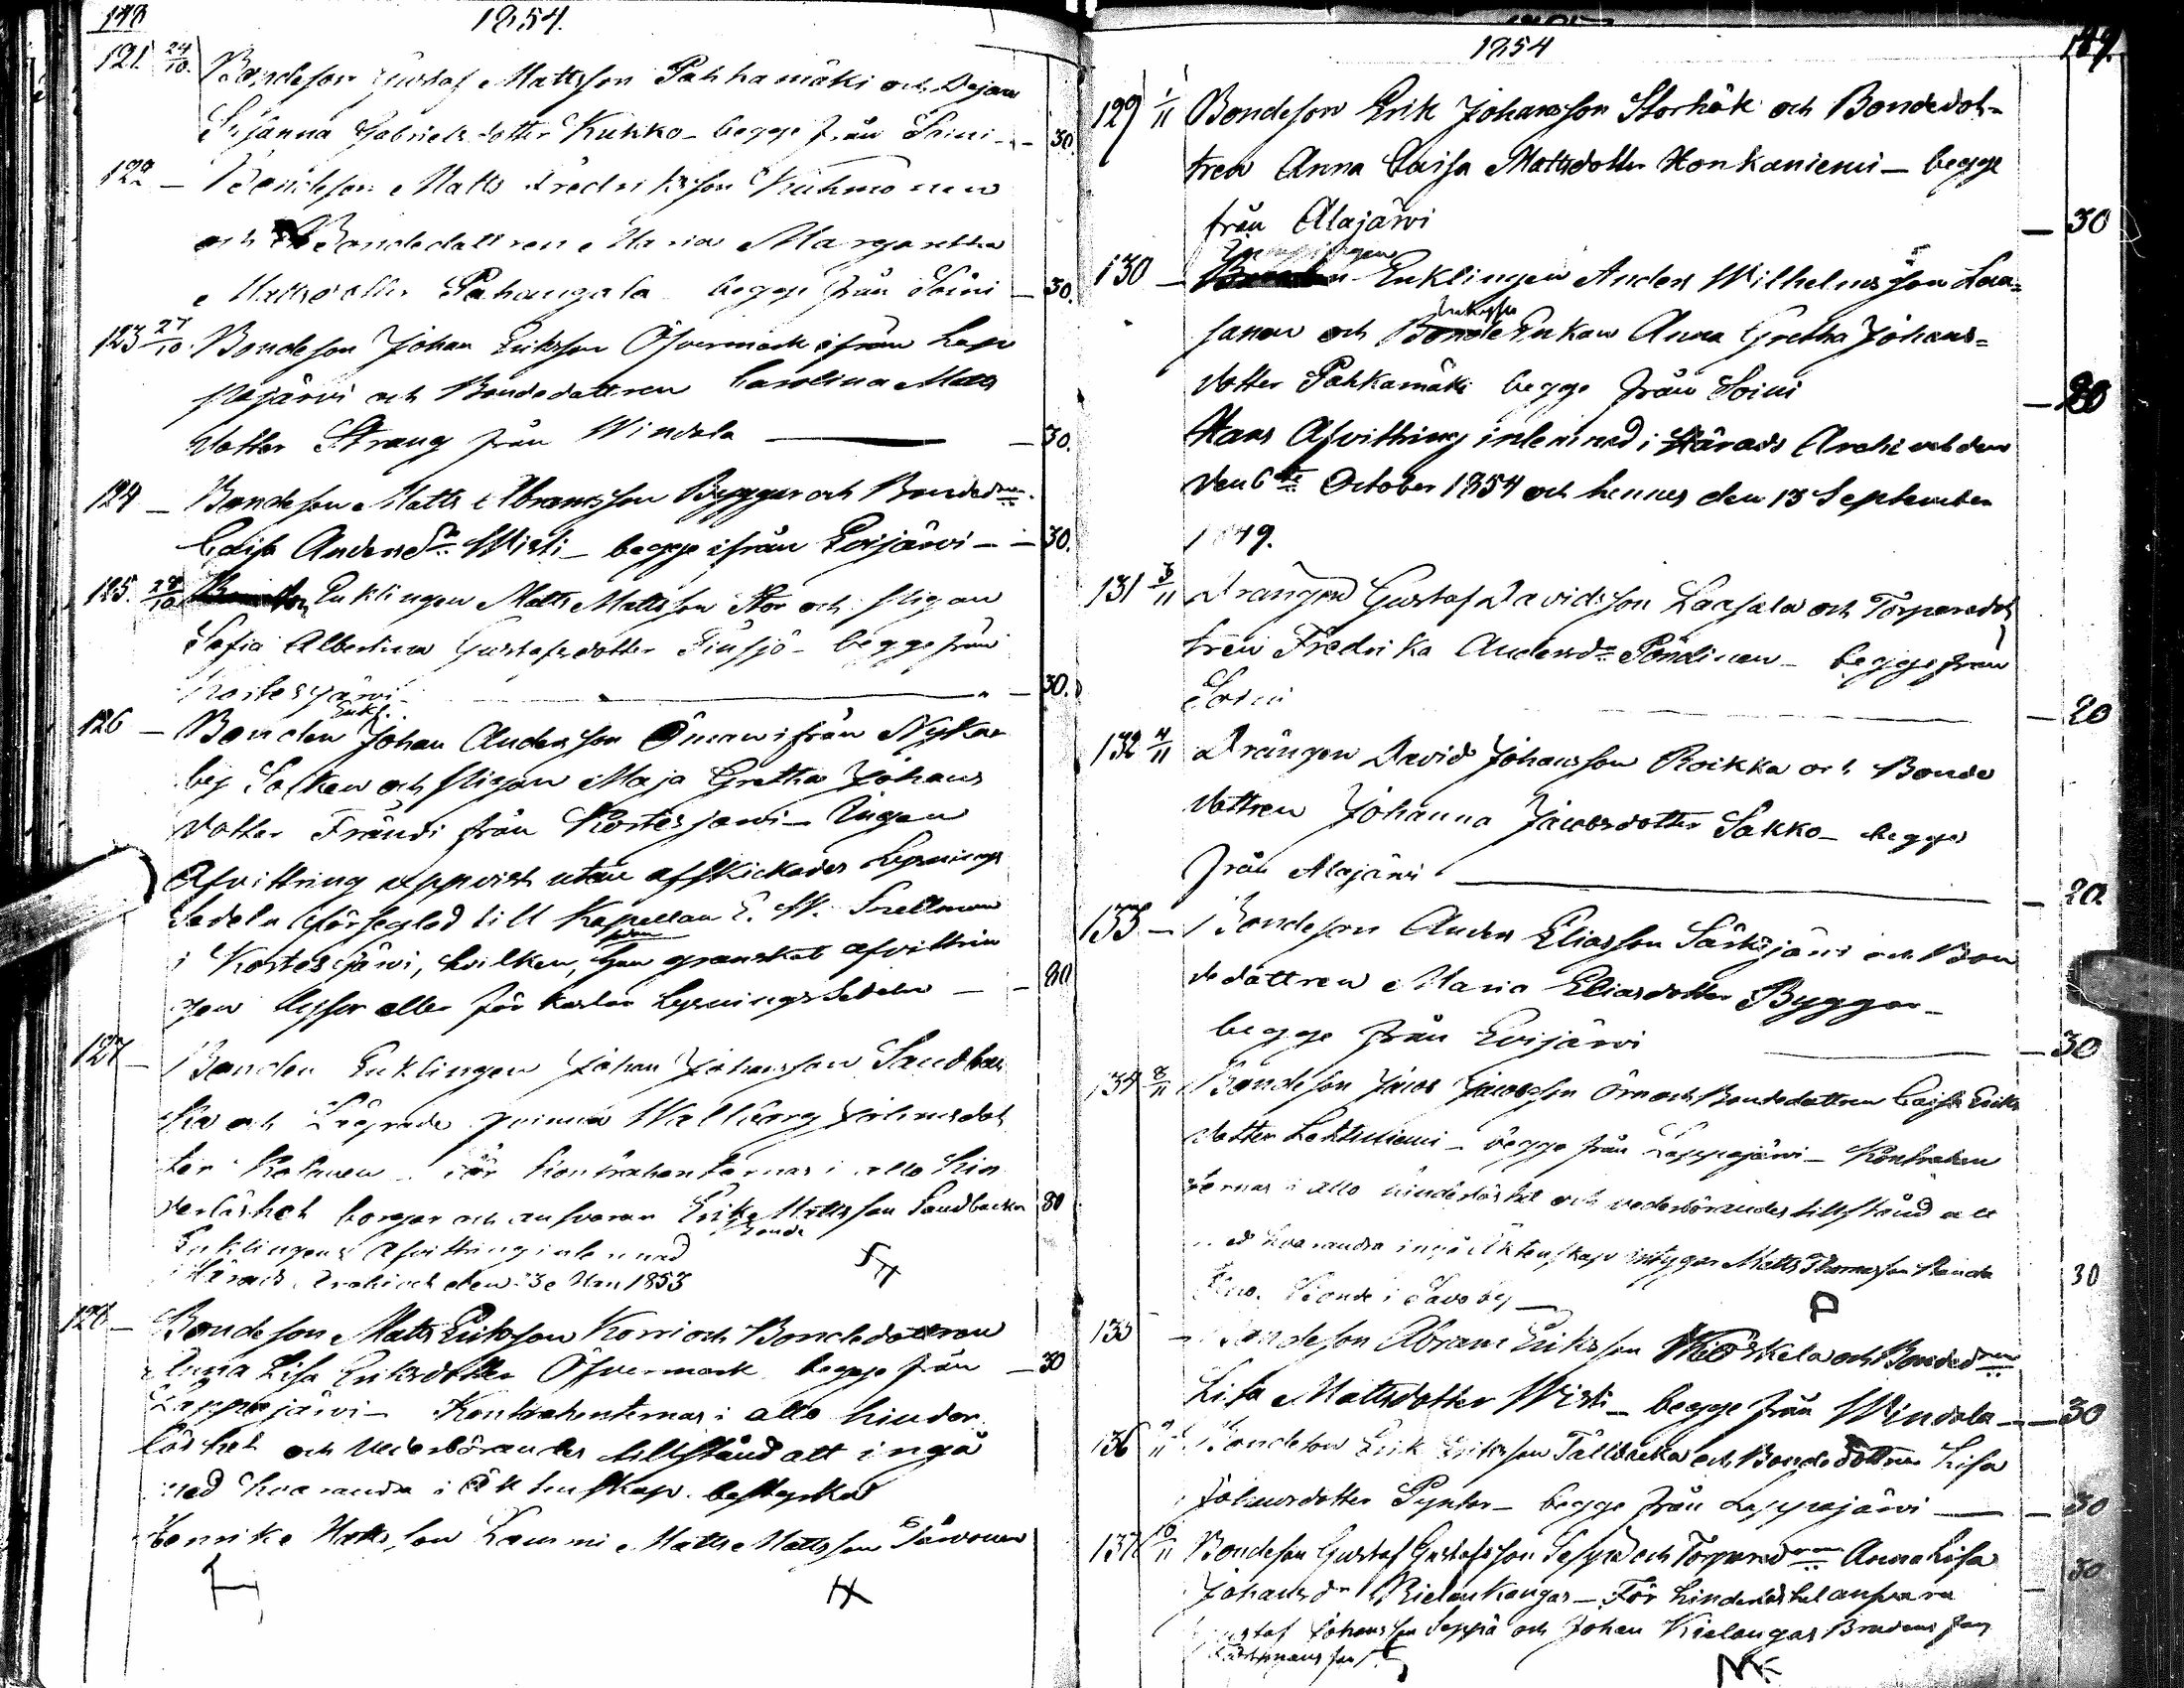 148
1854.
121. 24/10. Bondeson Gustaf Mattsson Pahkamäki och Pigan
Susanna Gabrielsdotter Kukko - begge från Soini - 30.
122 - Bondeson Matts Fredriksson Kuhmonen
och Bondedottren Maria Margaretha
Mattsdotter Pahangala begge från Soini - 30.
123 27/10. Bondeson Johan Eriksson Öfvermark ifrån Lap
pajärvi och Bondedottren Carolina Matts
dotter Strang från Windala - 30.
124 - Bondeson Matts Abramsson Byggar och Bondedren
Caisa Anders Dr Wisti - begge ifrån Evijärvi - 30.
125. 28/10 Enklingen Matts Mattsson Stor och Pigan
Sofia Albertina Gustafsdotter begge från
Kortesjärvi - 30.
Enkl.
126 - Bonden Johan Andersson Öman ifrån Nykar
by Socken och Pigan Maja Gretha Johans
dotter Frändi från Kortesjärvi - Ingen
Afvittring uppvist utan afskickades Lysnings
Sedeln förseglad till Kapellan E. W. Snellman
i Kortesjärvi, hvilken, granskat afvittrin
gen lyser eller förkastar Lysnings Sedeln - 80
127 - Bonden Enklingen Johan Johansson Sandbac
ka och Lägrade qvinnan Wallborg Johansdot
ter - För Kontrahenternas i allo hin
derlöshet borgar och ansvarar Erik Mattsson Sandbacka 80
Bonde
Enklingens Afvittring inlemnad
i Härads Archivet den 3 1853
128 - Bondeson Matts Eriksson Korri och Bondedottren
Anna Lisa Eriksdotter Öfvermark begge från - 30
Lappajärvi - Kontrahenternas i allo hinder
löshet och vederbörandes tillstånd att ingå
med hvarandra i äktenskap bestyrka
Henrik Mattsson Lammi Matts Mattsson Särvonen
149.
1854
129 1/11 Bondeson Erik Johansson Storhök och Bondedot-
tren Anna Caisa Mattsdotter Honkaniemi - begge
från Alajärvi - 30
130 - Enklingen Anders Wilhelmsson Laa-
sanen och Enkan Anna Gretha Johans-
dotter Pahkamäki begge från Soini - 20
Hans Afvittring inlemnad i Härads Archivet den
den 6te October 1854 och hennes den 13 September
1849.
131 3/11 Drängen Gustaf Davidsson Laasala och Torparedot
tren Fredrika Andersdr Pöndinen - begge från
Soini - 20
132 4/11 Drängen David Johansson Roikka och Bonde
dottren Johanna Jacobsdotter Sakko - begge
från Alajärvi - 20
133 - Bondeson Anders Eliasson Särkijärvi och Bon
dedottren Maria Eliasdotter Byggar -
begge från Evijärvi - 30
134 8/11 Bondeson Jacob Jacobsson Örn och Bondedottren Caisa Eriks
dotter Lehtiniemi - begge från Lappajärvi - Kontrahen
ternas i allo hinderlöshet och vederbörandes tillstånd att
med hvarandra ingå Äktenskap intygar Matts Thomasson
Bonde i Savo by 30
135 - Bondeson Abram Eriksson och Bondedren
Lisa Mattsdotter Wisti - begge från Windala - 30
136 Bondeson Erik Eriksson Tallbacka och Bondedottren Lisa
Johansdotter Pynter - begge från Lappajärvi - 30
137 10/11 Bondeson Gustaf Gustafsson Seppä och Torparedren Anna Lisa
Johansdr Kielankangas - För hinderlöshet ansvara - 30
Gustaf Johansson Seppä och Johan Kielangas